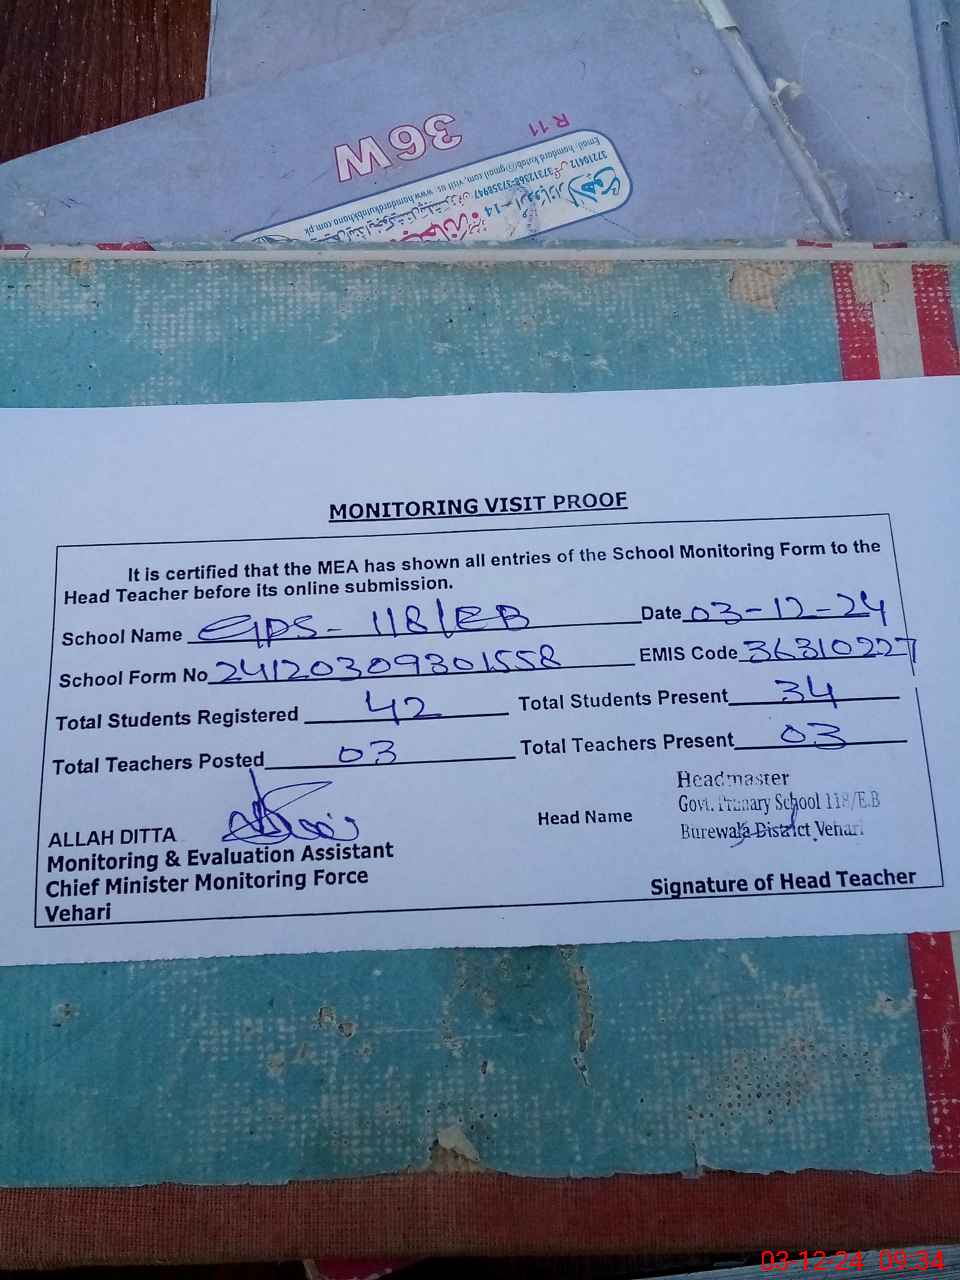 36W
R 11
37210412
37312368-37358947
Email: hamdard.kutab@gmail.com, visit us www.hamdardkutabkhana.com.pk
MONITORING VISIT PROOF
It is certified that the MEA has shown all entries of the School Monitoring Form to the
Head Teacher before its online submission.
School Name GPS-118/EB Date 03-12-24
School Form No 24120309301558 EMIS Code 36310227
Total Students Registered 42 Total Students Present 34
Total Teachers Posted 03 Total Teachers Present 03
Headmaster
Govt. Primary School 118/E.B
Burewala District Vehari.
ALLAH DITTA Head Name
Monitoring & Evaluation Assistant
Chief Minister Monitoring Force
Vehari
Signature of Head Teacher
03-12-24 09:34